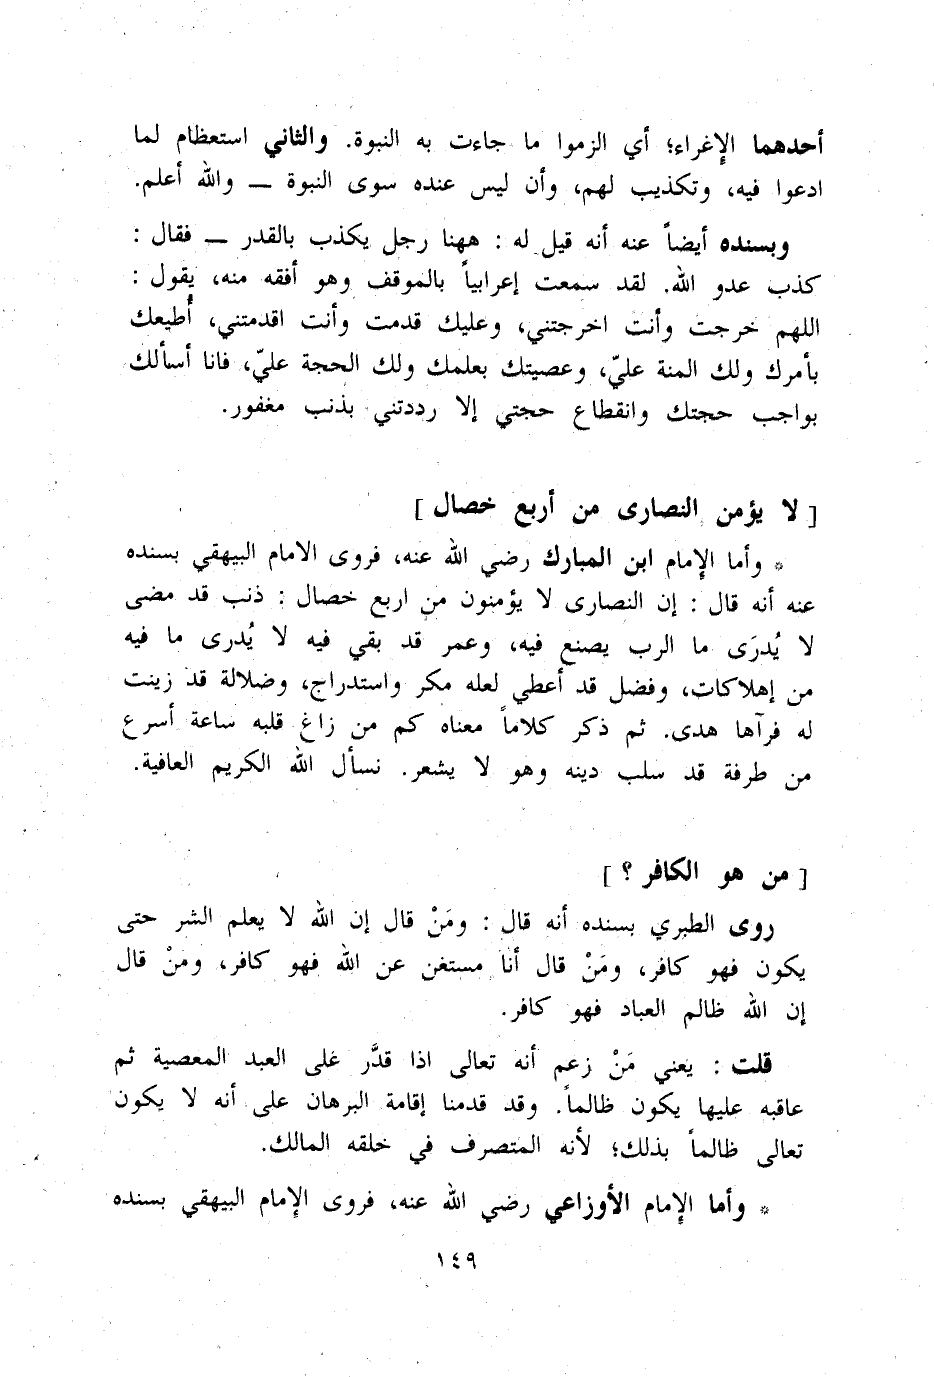 أحدهما الإغراء؛ أي الزموا ما جاءت به النبوة. والثاني استعظام لما
ادعوا فيه، وتكذيب لهم، وأن ليس عنده سوى النبوة ــ والله أعلم.
وبسنده أيضاً عنه أنه قيل له : ههنا رجل يكذب بالقدر ــ فقال :
كذب عدو الله. لقد سمعت إعرابياً بالموقف وهو أفقه منه، يقول :
اللهم خرجت وأنت اخرجتني، وعليك قدمت وأنت اقدمتني، أُطيعك
بأمرك ولك المنة عليّ، وعصيتك بعلمك ولك الحجة عليّ، فانا أسألك
بواجب حجتك وانقطاع حجتي إلا رددتني بذنب مغفور.
[ لا يؤمن النصارى من أربع خصال ]
* وأما الإمام ابن المبارك رضي الله عنه، فروى الامام البيهقي بسنده
عنه أنه قال : إن النصارى لا يؤمنون من اربع خصال : ذنب قد مضى
لا يُدرَى ما الرب يصنع فيه، وعمر قد بقي فيه لا يُدرى ما فيه
من إهلاكات، وفضل قد أعطي لعله مكر واستدراج، وضلالة قد زينت
له فرآها هدى. ثم ذكر كلاماً معناه كم من زاغ قلبه ساعة أسرع
من طرفة قد سلب دينه وهو لا يشعر. نسأل الله الكريم العافية.
[ من هو الكافر ؟ ]
روى الطبري بسنده أنه قال : ومَنْ قال إن الله لا يعلم الشر حتى
يكون فهو كافر، ومَنْ قال أنا مستغن عن الله فهو كافر، ومَنْ قال
إن الله ظالم العباد فهو كافر.
قلت : يعني مَنْ زعم أنه تعالى اذا قدَّر على العبد المعصية ثم
عاقبه عليها يكون ظالماً. وقد قدمنا إقامة البرهان على أنه لا يكون
تعالى ظالماً بذلك؛ لأنه المتصرف في خلقه المالك.
* وأما الإمام الأوزاعي رضي الله عنه، فروى الإمام البيهقي بسنده
١٤٩